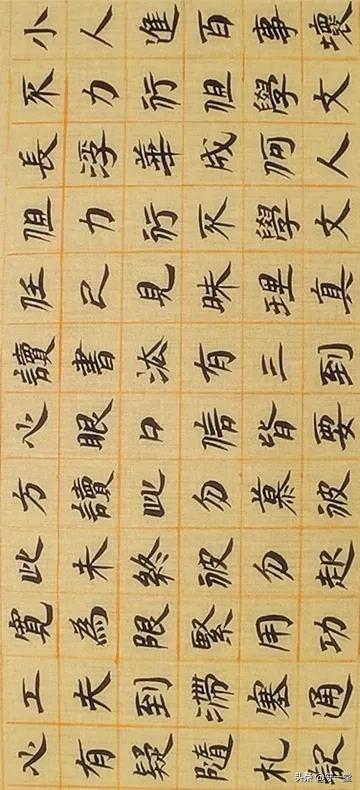 小人進百事壞
不力行但學文
長浮華成何人
但力行不學文
任己見昧理真
讀書法有三到
心眼口信皆要
方讀此勿慕彼
此未終彼勿起
寬為限緊用功
工夫到滯塞通
心有疑隨札記
头条 @守一堂